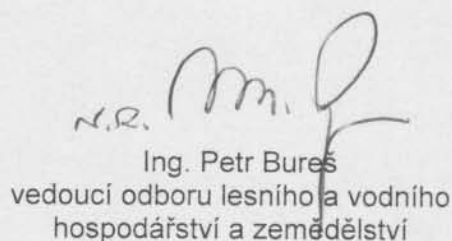 N.R.
Ing. Petr Bureš
vedoucí odboru lesního a vodního
hospodářství a zemědělství